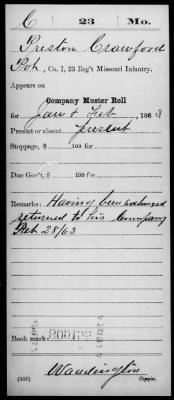 C 23 Mo.
Preston Crawford
Pvt, Co. I, 23 Reg't Missouri Infantry.
Appears on
Company Muster Roll
for Jan & Feb, 1863
Present or absent present
Stoppage, $ 100 for
Due Gov't, $ 100 for
Remarks: Having been exchanged
returned to his Company
Feb 28/63
Book mark:
(358) Copyist.